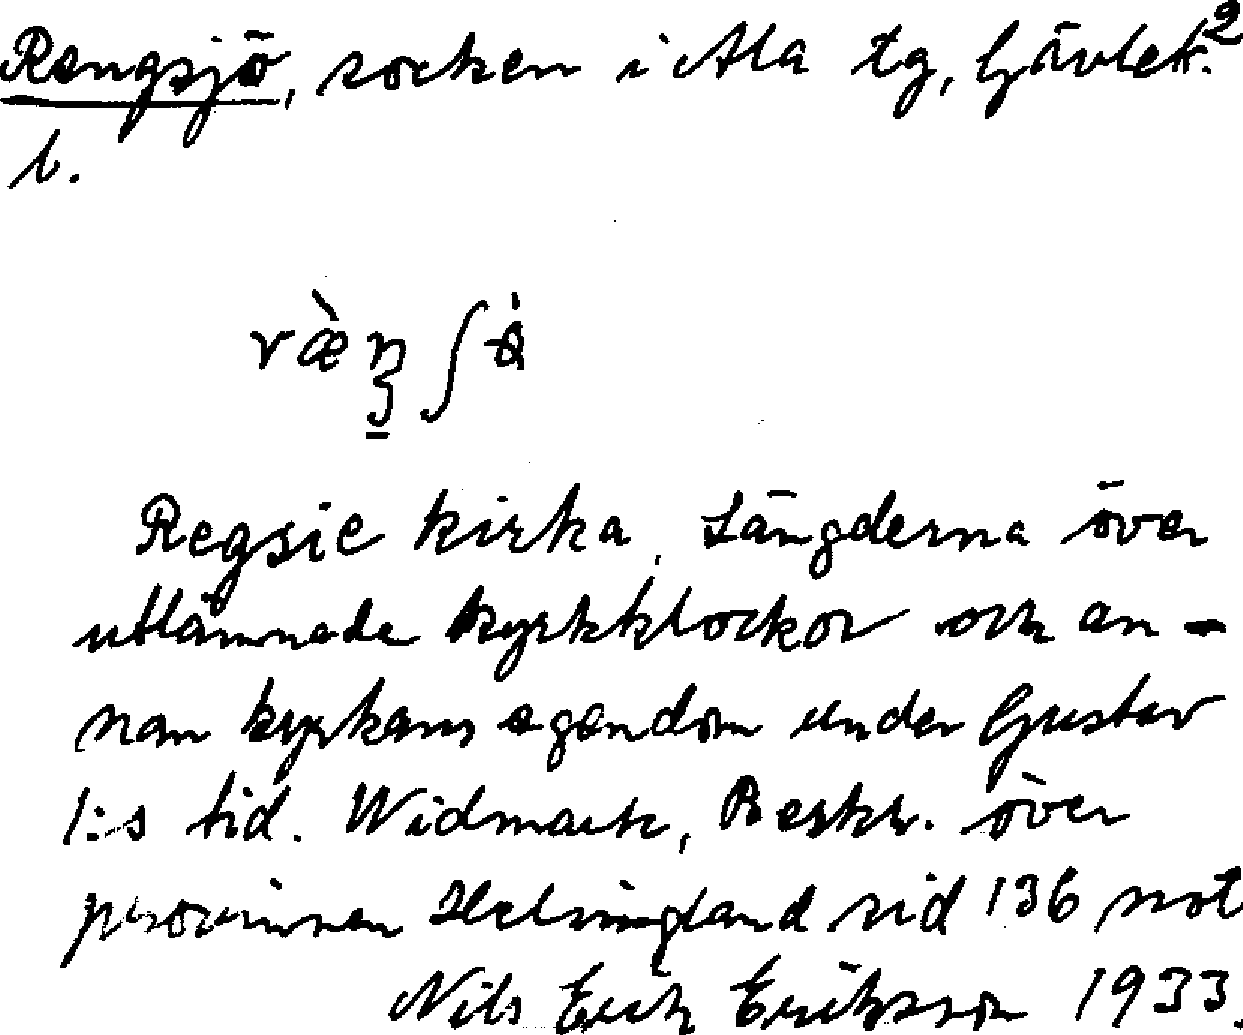 Rengsjö, socken i Ala tg, Gävleb.²
l.
Regsie kirka, Längderna över
utlämnade kyrkklockor och an-
nan kyrkans egendom under Gustav
I:s tid. Widmark, Beskr. över
provinsen Helsingland sid 136 not
Nils Erik Eriksson 1933.